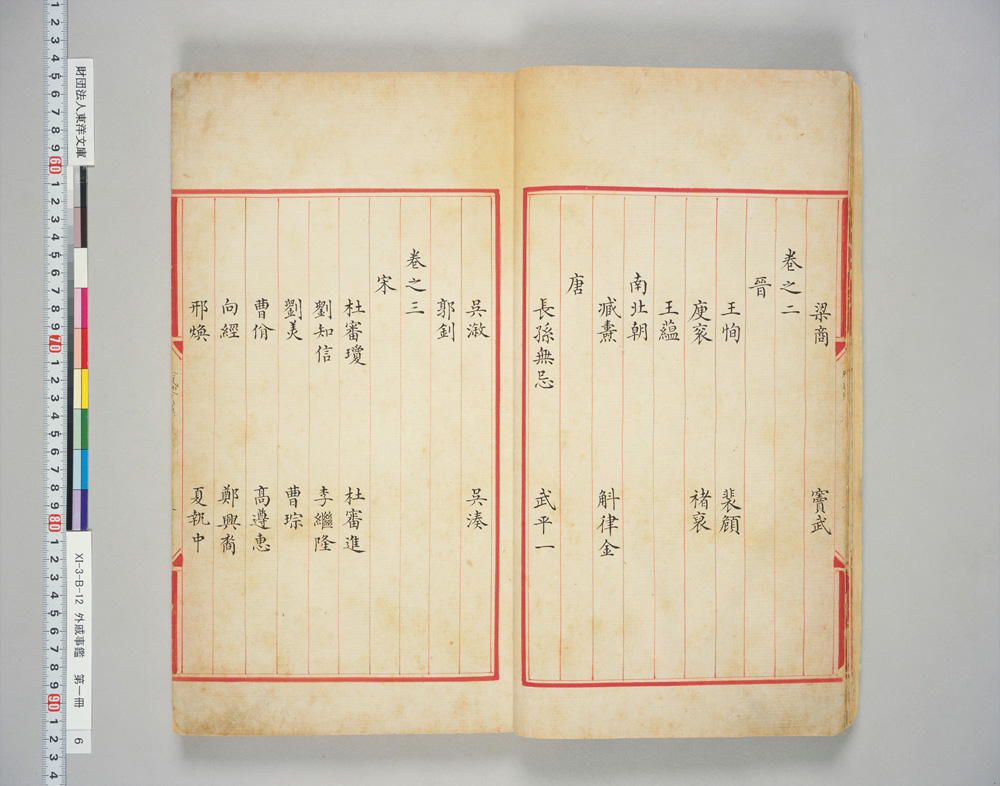 梁商 竇武
卷之二
晉
王恂 裴頠
庾袞 褚裒
王蘊
南北朝
臧燾 斛律金
唐
長孫無忌 武平一
吳漵 吳湊
郭釗
卷之三
宋
杜審瓊 杜審進
劉知信 李繼隆
劉美 曹琮
曹佾 高遵惠
向經 鄭興裔
邢煥 夏執中
財団法人東洋文庫
XI-3-B-12 外戚事鑑 第一冊 6